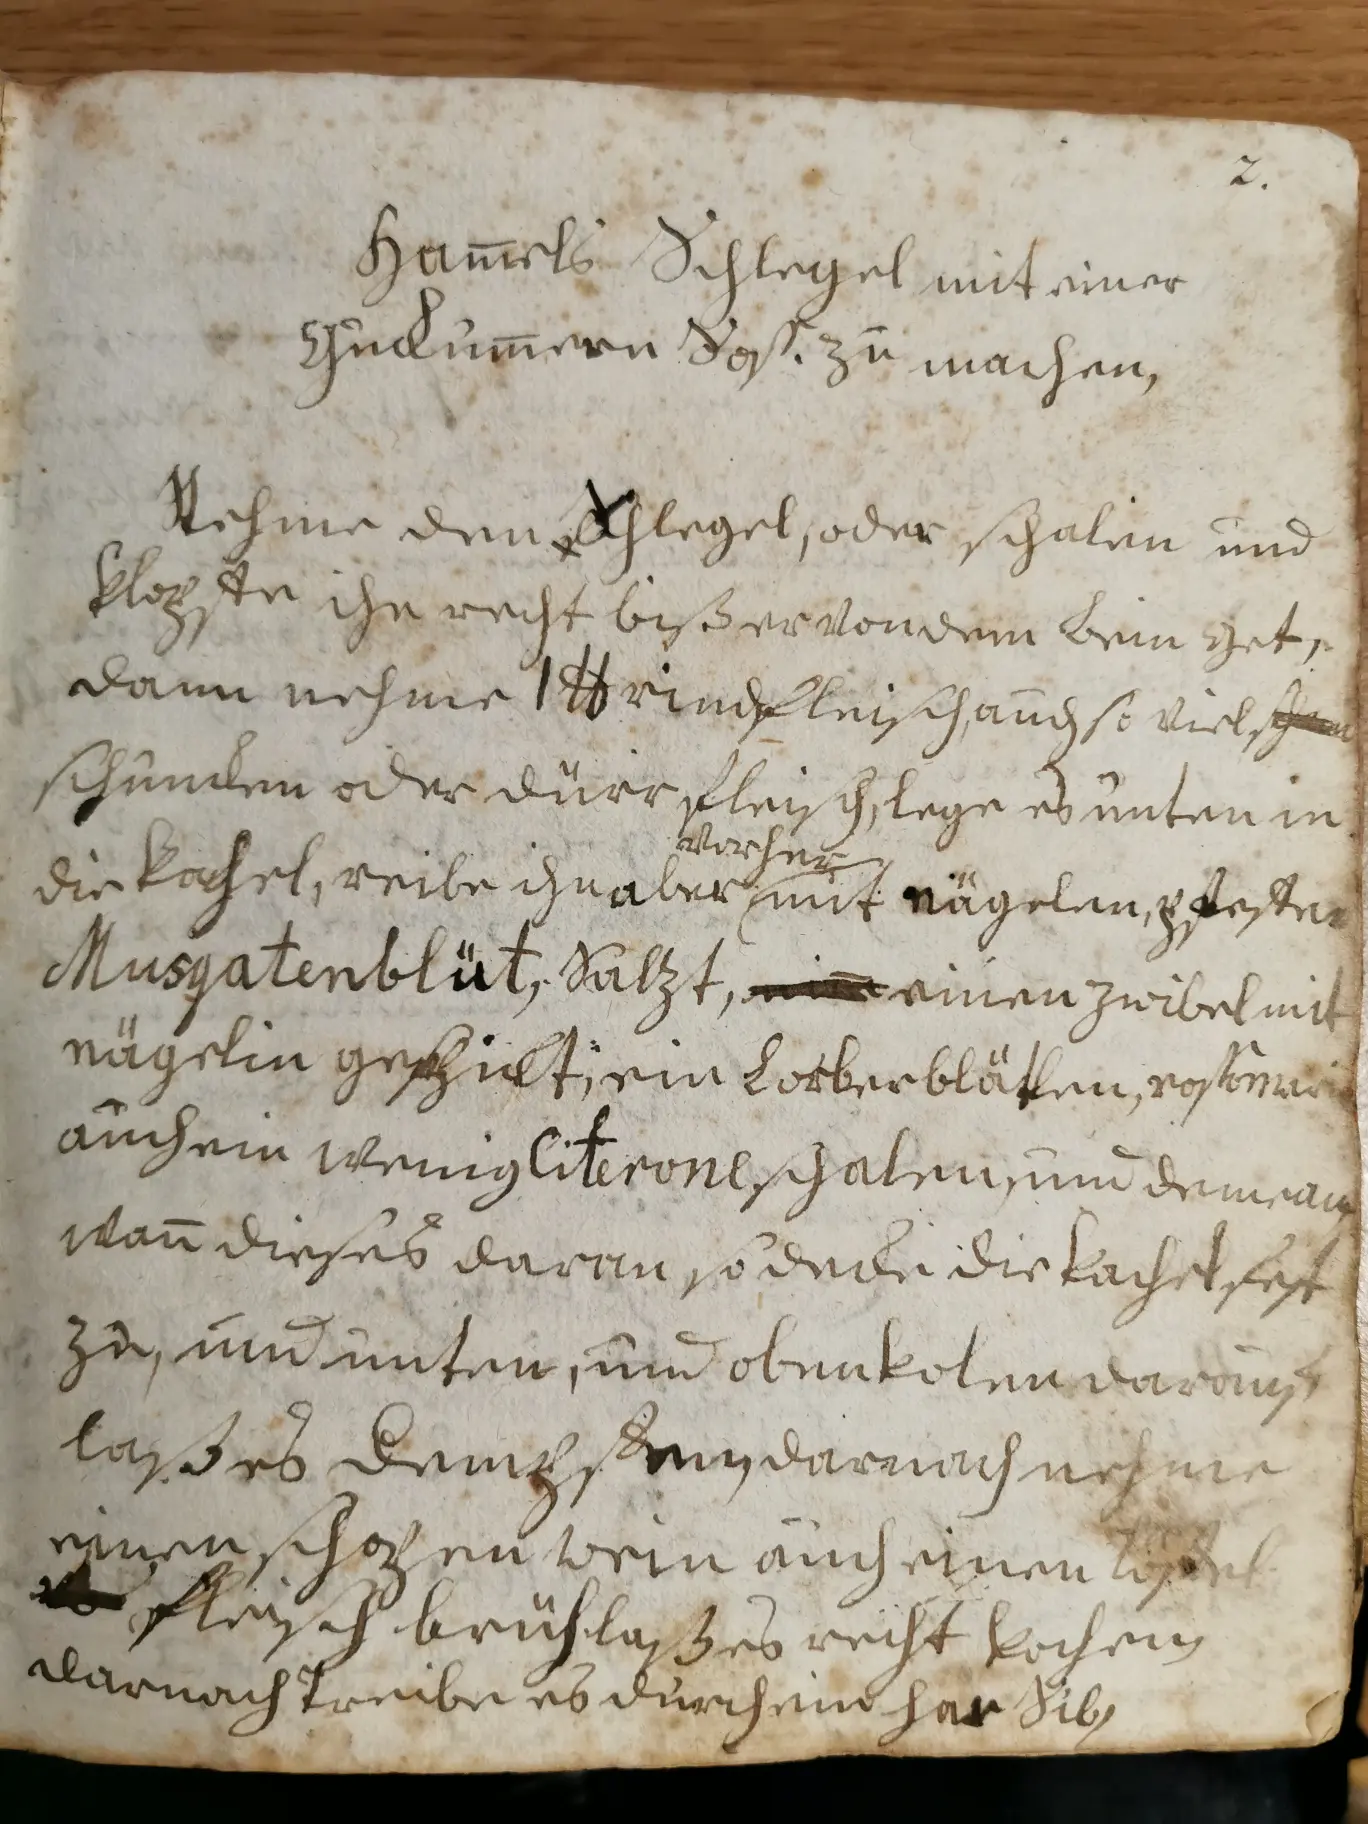 2.
Ham̅els Schlegel mit einer
Guckum̅ern Soß. zu machen,
Nehme den Schlegel, oder schalen und
klopfte ihn recht biß er von dem bein get,
dann nehme 1 ℔ rindfleisch, auch so viel
schuncken oder dürr fleisch, lege es unten in
die kachel, reibe ihn aber vorher mit nägelen, pfeffer
Musgatenblüt, Saltzt, einen zwibel mit
nägelin gespickt, ein Lorberblätlen, rossmari
auch ein wenig Citerone schalen, und
wan̅ dieses daran so decke die kachel fest
zu, und unten, und oben kolen darauf,
laß es dempfen, darnach nehme
einen schopen wein auch einen löffel
fleisch brüh laß es recht kochen,
darnach treibe es durch ein har Sib,